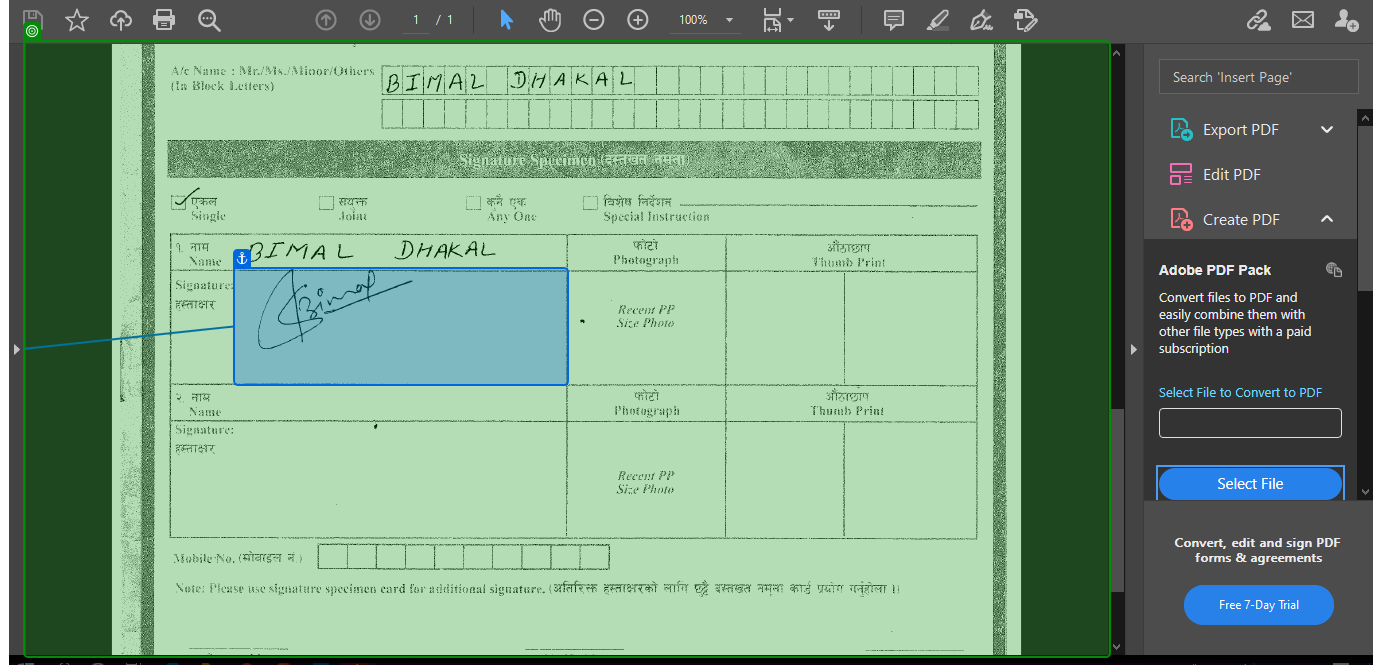 1 / 1
100%
A/c Name : Mr./Ms./Minor/Others
(In Block Letters)
BIMAL DHAKAL
Signature Specimen (दस्तखत नमूना)
एकल
Single
संयुक्त
Joint
कुनै एक
Any One
विशेष निर्देशन
Special Instruction
१. नाम
Name
BIMAL DHAKAL
फोटो
Photograph
औंठाछाप
Thumb Print
Signature:
हस्ताक्षर
Bimal
Recent PP
Size Photo
२. नाम
Name
फोटो
Photograph
औंठाछाप
Thumb Print
Signature:
हस्ताक्षर
Recent PP
Size Photo
Mobile No. (मोबाइल नं.)
Note: Please use signature specimen card for additional signature. (अतिरिक्त हस्ताक्षरको लागि छुट्टै दस्तखत नमूना कार्ड प्रयोग गर्नुहोला ।)
Search 'Insert Page'
Export PDF
Edit PDF
Create PDF
Adobe PDF Pack
Convert files to PDF and
easily combine them with
other file types with a paid
subscription
Select File to Convert to PDF
Select File
Convert, edit and sign PDF
forms & agreements
Free 7-Day Trial